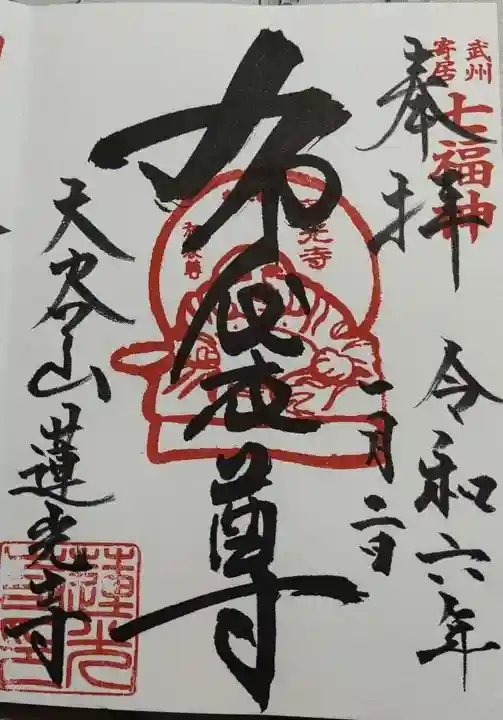 武州
寄居
七福神
奉拝
令和六年
一月二日
布袋尊
蓮光寺
布袋尊
天谷山 蓮光寺